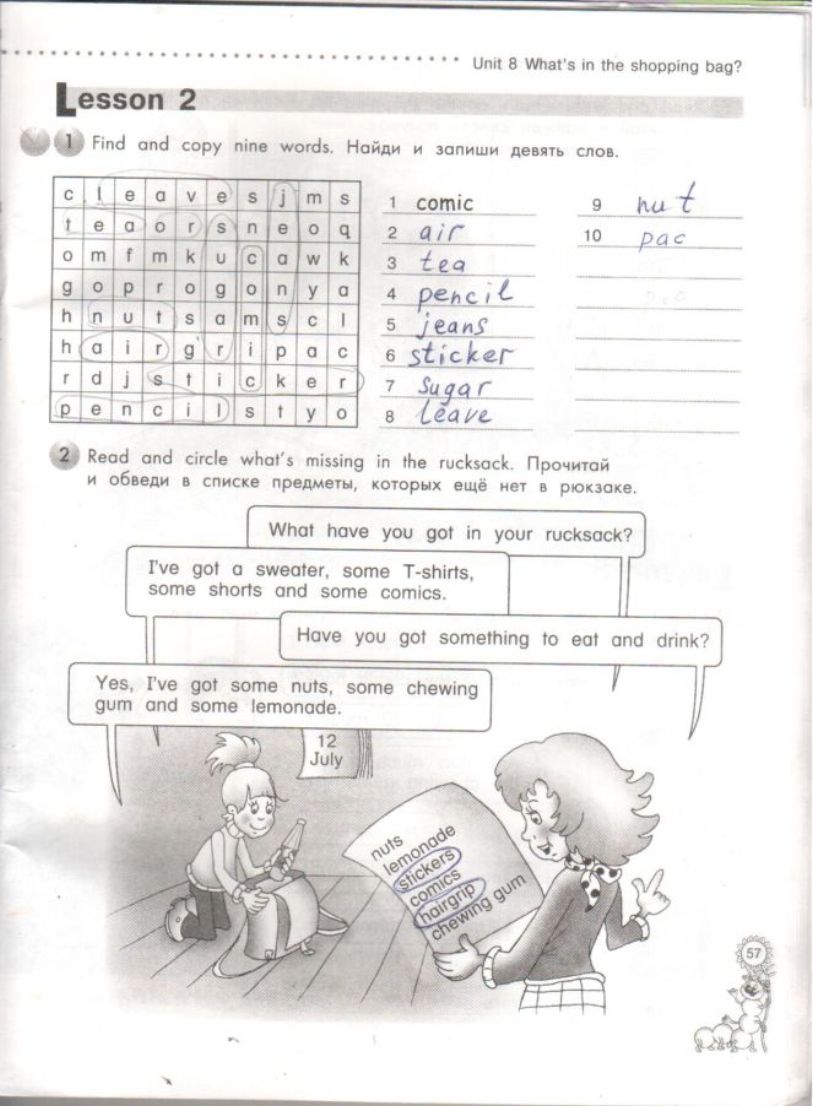 Unit 8 What's in the shopping bag?
Lesson 2
1 Find and copy nine words. Найди и запиши девять слов.
c l e a v e s j m s
t e a o r s n e o q
o m f m k u c a w k
g o p r o g o n y a
h n u t s a m s c l
h a i r g r i p a c
r d j s t i c k e r
p e n c i l s t y o
1 comic
2 air
3 tea
4 pencil
5 jeans
6 sticker
7 sugar
8 leave
9 nut
10 pac
2 Read and circle what's missing in the rucksack. Прочитай
и обведи в списке предметы, которых ещё нет в рюкзаке.
What have you got in your rucksack?
I've got a sweater, some T-shirts,
some shorts and some comics.
Have you got something to eat and drink?
Yes, I've got some nuts, some chewing
gum and some lemonade.
12
July
nuts
lemonade
stickers
comics
hairgrip
chewing gum
57